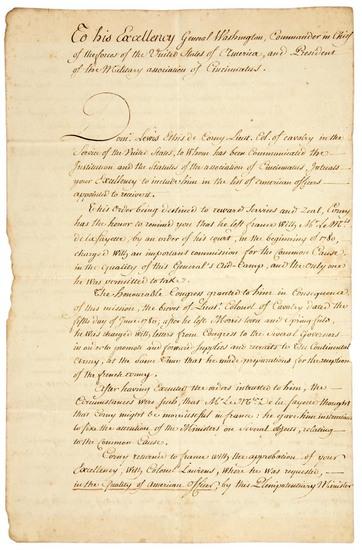 To his Excellency General Washington, Commander in Chief
of the forces of the United States of America, and President
of the Military association of Cincinnatus.
Lewis Ethis de Corny Lieut. Col. of cavalry in the
Service of the United States, to whom has been Communicated the
Institution and the Statutes of the association of Cincinnatus, Intreats
your Excellency to include him in the list of american officers
appointed to receive it.
This order being destined to reward Services and Zeal, Corny
has the honor to remind you that he left france with Mr. Le Mis.
de lafayette, by an order of his court, in the beginning of 1780,
charged with an important commission for the Common Cause
in the quality of this General's Aid-Camp, and the only one
he was permitted to take.
The honourable Congress granted to him in Consequence
of this mission, the brevet of Lieut. Colonel of Cavalry dated the
fifth day of June 1780; after he left
he was charged with letters from Congress to the Several Governors
in order to promote and forward Supplies and recruits to the Continental
Army, at the Same Time that he made preparations for the reception
of the french army.
After having Executed the orders intrusted to him, the
Circumstances was such, that Mr. Le Mis. De la fayette thought
that Corny might be more usefull in france: he gave him instructions
to fix the attention of the Ministers on Several objects, relating
to the Common Cause.
Corny returned to france with the approbation of your
Excellency, with Colonel Laurens, where he was requested,
in the Quality of American officer, by this Plenipotentiary Minister